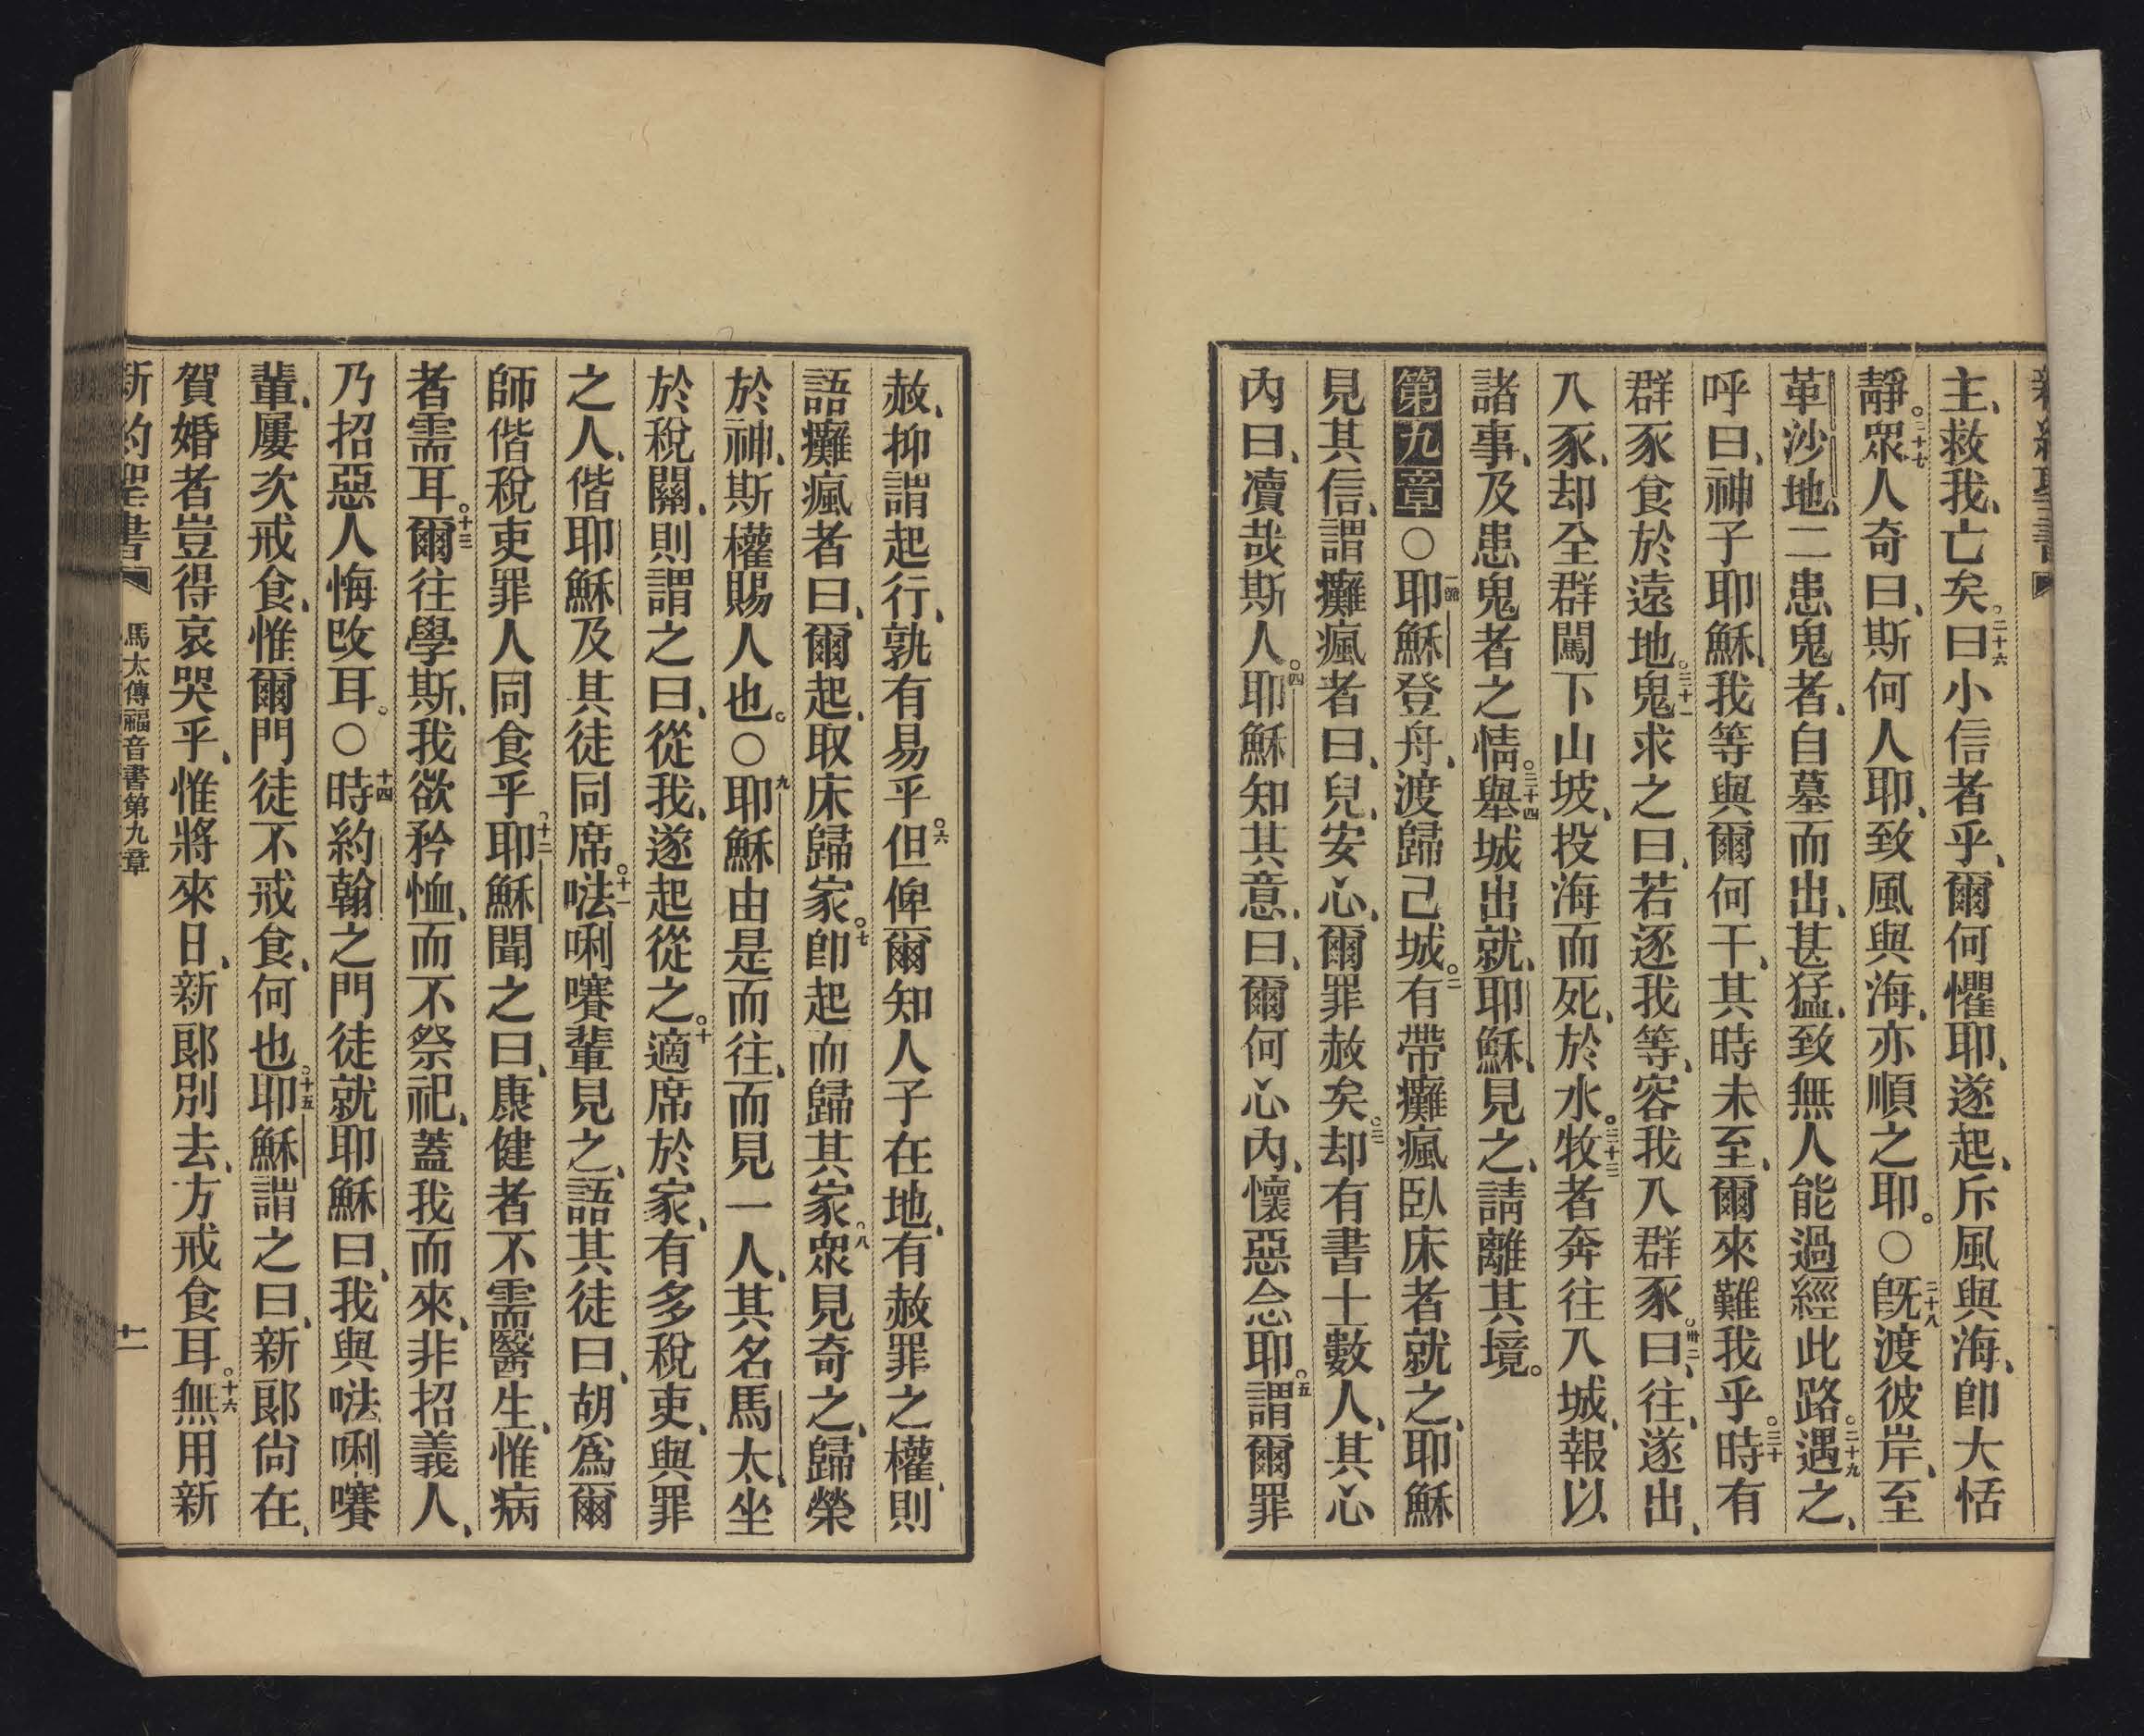 新約聖書
主、救我、亡矣。二十六曰小信者乎、爾何懼耶、遂起、斥風與海、卽大恬
靜。二十七眾人奇曰、斯何人耶、致風與海、亦順之耶。○二十八旣渡彼岸、至
革沙地、二患鬼者、自墓而出、甚猛、致無人能過經此路。二十九遇之、
呼曰、神子耶穌、我等與爾何干、其時未至、爾來難我乎。三十時有
群豕食於遠地。三十一鬼求之曰、若逐我等、容我入群豕。卅二曰、往、遂出、
入豕、却全群闖下山坡、投海而死、於水。三十三牧者奔往入城、報以
諸事、及患鬼者之情。三十四舉城出就、耶穌、見之、請離其境。
第九章○一節耶穌登舟、渡歸己城。二有帶癱瘋臥床者就之、耶穌
見其信、謂癱瘋者曰、兒、安心、爾罪赦矣。三却有書士數人、其心
內曰、凟哉斯人。四耶穌知其意、曰、爾何心內、懷惡念耶。五謂爾罪
赦、抑謂起行、孰有易乎。六但俾爾知人子在地、有赦罪之權、則
語癱瘋者曰、爾起、取床歸家。七卽起而歸其家。八衆見奇之、歸榮
於神、斯權賜人也。○九耶穌由是而往、而見一人、其名馬太、坐
於稅關、則謂之曰、從我、遂起從之。十適席於家、有多稅吏、與罪
之人、偕耶穌及其徒同席。十一㖿唎㘔輩見之、語其徒曰、胡爲爾
師偕稅吏罪人同食乎。十二耶穌聞之曰、康健者不需醫生、惟病
者需耳。十三爾往學斯、我欲矜恤、而不祭祀、蓋我而來、非招義人、
乃招惡人悔改耳。○十四時約翰之門徒就耶穌曰、我與㖿唎㘔
輩、屢次戒食、惟爾門徒不戒食、何也。十五耶穌謂之曰、新郎尙在、
賀婚者豈得哀哭乎、惟將來日、新郎別去、方戒食耳。十六無用新
新約聖書 馬太傳福音書第九章 十一